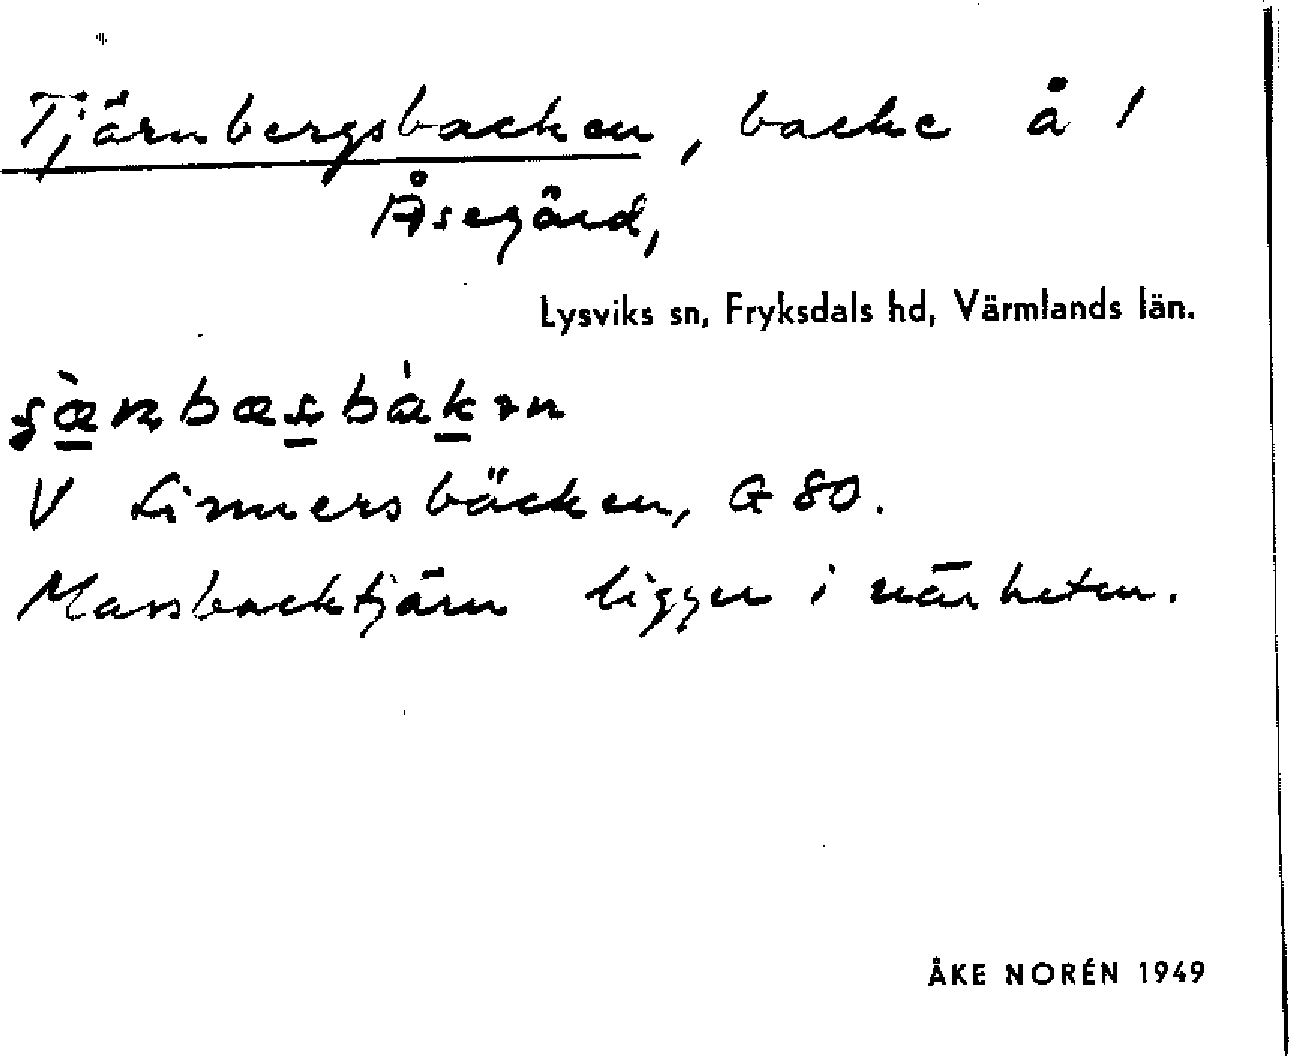 Tjärnbergsbacken, backe å 1
Åsegärd,
Lysviks sn, Fryksdals hd, Värmlands län.
V Linnersbäcken, G 80.
Massbacktjärn ligger i närheten.
ÅKE NORÉN 1949